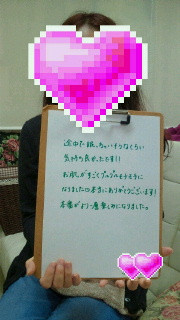 途中た眠っちゃいそうなくらい
気持ち良かったです!!
お肌がすごくプルプルモチモチに
なりました♡本当にありがとうございます!
本番がより一層楽しみになりました。